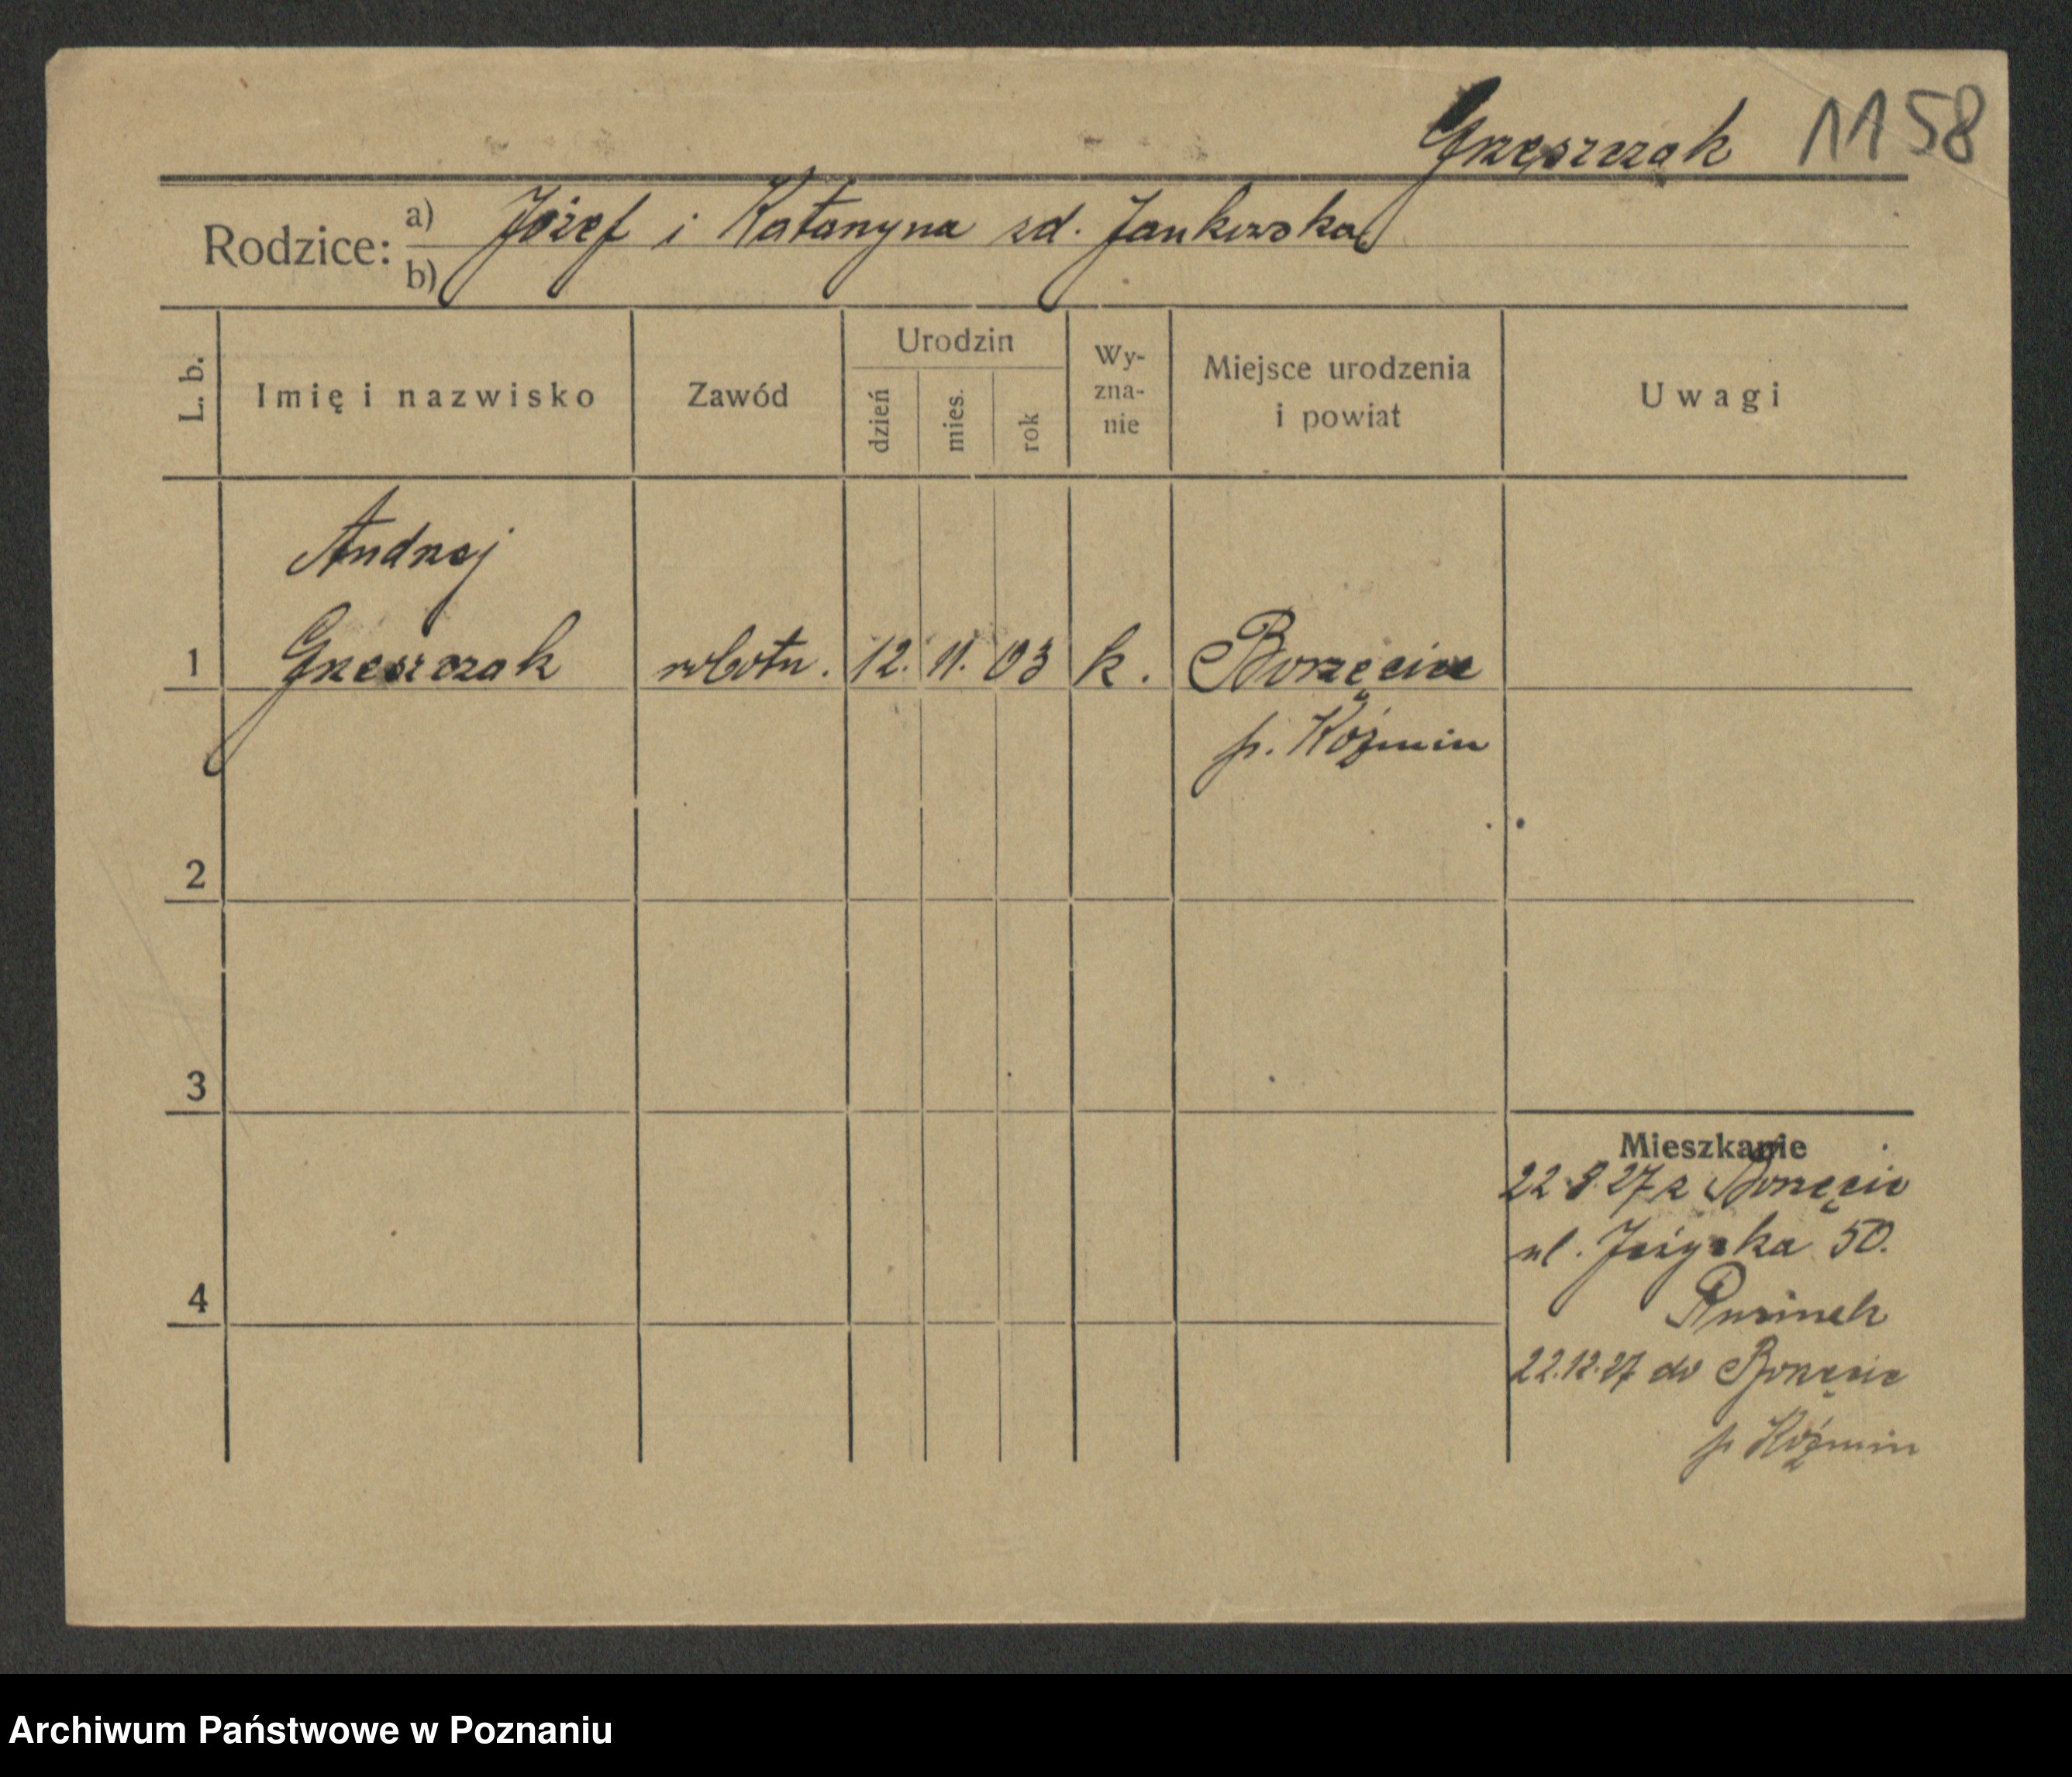 Grzeszczak 1158
Rodzice: a) Józef i Katarzyna zd. Jankowska
b)
L. b. Imię i nazwisko Zawód Urodzin dzień mies. rok Wy-zna-nie Miejsce urodzenia i powiat Uwagi
Andrzej
1 Grzeszczak robotn. 12. 11. 03 k. Borzęcice
p. Koźmin
2
3
Mieszkanie
22 27 z Borzęcic
ul. Jeżycka 50.
4
22.12.27 do Borzęcic
p. Koźmin
Archiwum Państwowe w Poznaniu